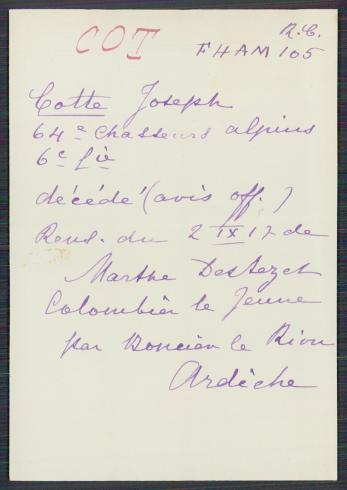 COT
R.C.
FHAM 105
Cotte Joseph
64e chasseurs alpins
6e Cie
décédé (avis off.)
Rens. du 2 IX 17 de
Marthe Desbezet
Colombier le Jeune
par Boucieu le Rion
Ardèche